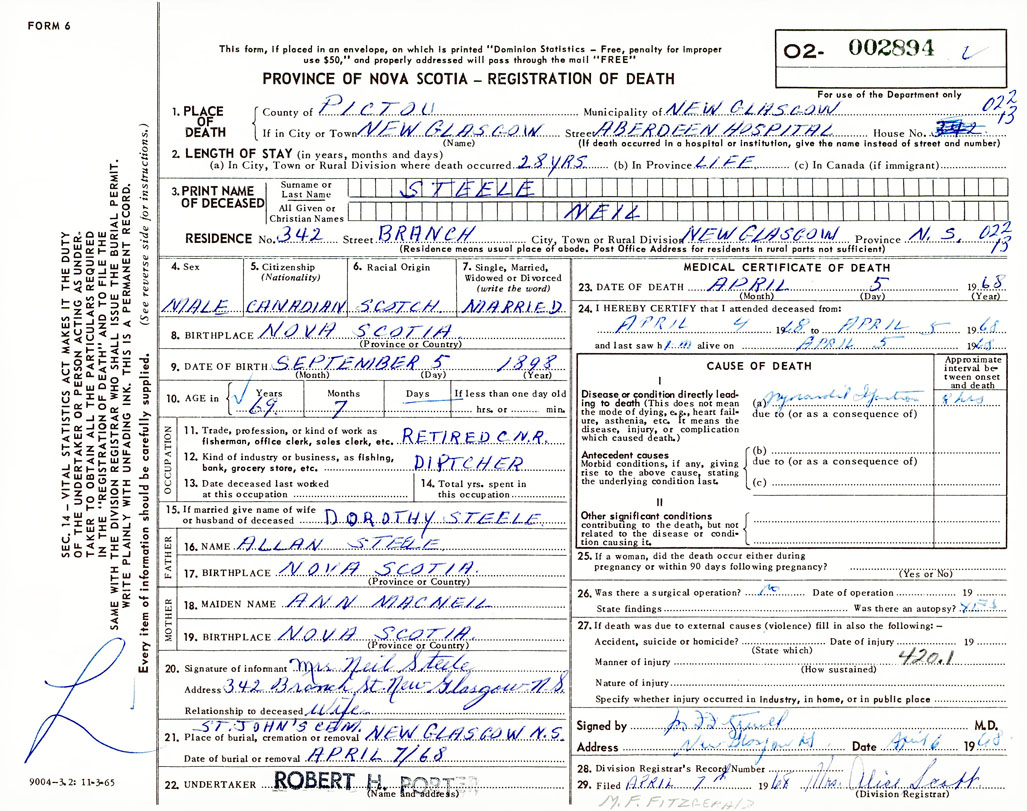 FORM 6
This form, if placed in an envelope, on which is printed "Dominion Statistics – Free, penalty for improper
use $50," and properly addressed will pass through the mail "FREE"
PROVINCE OF NOVA SCOTIA – REGISTRATION OF DEATH
O2- 002894
For use of the Department only
022
13
1. PLACE OF DEATH
County of PICTOU Municipality of NEW GLASGOW
If in City or Town NEW GLASGOW Street ABERDEEN HOSPITAL House No. 342
(Name) (If death occurred in a hospital or institution, give the name instead of street and number)
2. LENGTH OF STAY (in years, months and days)
(a) In City, Town or Rural Division where death occurred 28 YRS (b) In Province LIFE (c) In Canada (if immigrant)
3. PRINT NAME OF DECEASED
Surname or Last Name STEELE
All Given or Christian Names NEIL
RESIDENCE No. 342 Street BRANCH City, Town or Rural Division NEW GLASGOW Province N.S. 022
13
(Residence means usual place of abode. Post Office Address for residents in rural parts not sufficient)
4. Sex
MALE
5. Citizenship
(Nationality)
CANADIAN
6. Racial Origin
SCOTCH
7. Single, Married,
Widowed or Divorced
(write the word)
MARRIED
8. BIRTHPLACE NOVA SCOTIA
(Province or Country)
9. DATE OF BIRTH SEPTEMBER 5 1898
(Month) (Day) (Year)
10. AGE in Years Months Days If less than one day old
69 7 hrs. or min.
OCCUPATION
11. Trade, profession, or kind of work as
fisherman, office clerk, sales clerk, etc. RETIRED C.N.R.
12. Kind of industry or business, as fishing,
bank, grocery store, etc. DIPTCHER
13. Date deceased last worked
at this occupation
14. Total yrs. spent in
this occupation
15. If married give name of wife
or husband of deceased DOROTHY STEELE
FATHER
16. NAME ALLAN STEELE
17. BIRTHPLACE NOVA SCOTIA
(Province or Country)
MOTHER
18. MAIDEN NAME ANN MACNEIL
19. BIRTHPLACE NOVA SCOTIA
(Province or Country)
20. Signature of informant Mrs Neil Steele
Address 342 Branch St. New Glasgow N.S
Relationship to deceased Wife
ST. JOHN'S CEM.
21. Place of burial, cremation or removal NEW GLASGOW N.S.
Date of burial or removal APRIL 7/68
22. UNDERTAKER ROBERT H. PORTER
(Name and address)
MEDICAL CERTIFICATE OF DEATH
23. DATE OF DEATH APRIL 5 1968
(Month) (Day) (Year)
24. I HEREBY CERTIFY that I attended deceased from:
APRIL 4 1968 to APRIL 5 1968
and last saw him alive on APRIL 5 1968
CAUSE OF DEATH
Approximate
interval be-
tween onset
and death
I
Disease or condition directly lead-
ing to death (This does not mean
the mode of dying, e.g., heart fail-
ure, asthenia, etc. It means the
disease, injury, or complication
which caused death.)
(a) Myocardial Infarction 8 hrs
due to (or as a consequence of)
Antecedent causes
Morbid conditions, if any, giving
rise to the above cause, stating
the underlying condition last.
(b)
due to (or as a consequence of)
(c)
II
Other significant conditions
contributing to the death, but not
related to the disease or condi-
tion causing it.
25. If a woman, did the death occur either during
pregnancy or within 90 days following pregnancy?
(Yes or No)
26. Was there a surgical operation? No Date of operation 19
State findings Was there an autopsy? YES
27. If death was due to external causes (violence) fill in also the following: –
Accident, suicide or homicide? Date of injury 19
(State which)
Manner of injury 420.1
(How sustained)
Nature of injury
Specify whether injury occurred in industry, in home, or in public place
Signed by M.D.
Address New Glasgow NS Date April 6 1968
28. Division Registrar's Record Number
29. Filed APRIL 7th 1968 Mrs. Alice Scott
(Division Registrar)
M. F. FITZGERALD
SEC. 14 – VITAL STATISTICS ACT MAKES IT THE DUTY
OF THE UNDERTAKER OR PERSON ACTING AS UNDER-
TAKER TO OBTAIN ALL THE PARTICULARS REQUIRED
IN THE "REGISTRATION OF DEATH" AND TO FILE THE
SAME WITH THE DIVISION REGISTRAR WHO SHALL ISSUE THE BURIAL PERMIT.
WRITE PLAINLY WITH UNFADING INK. THIS IS A PERMANENT RECORD.
Every item of information should be carefully supplied. (See reverse side for instructions.)
9004-3.2: 11-3-65